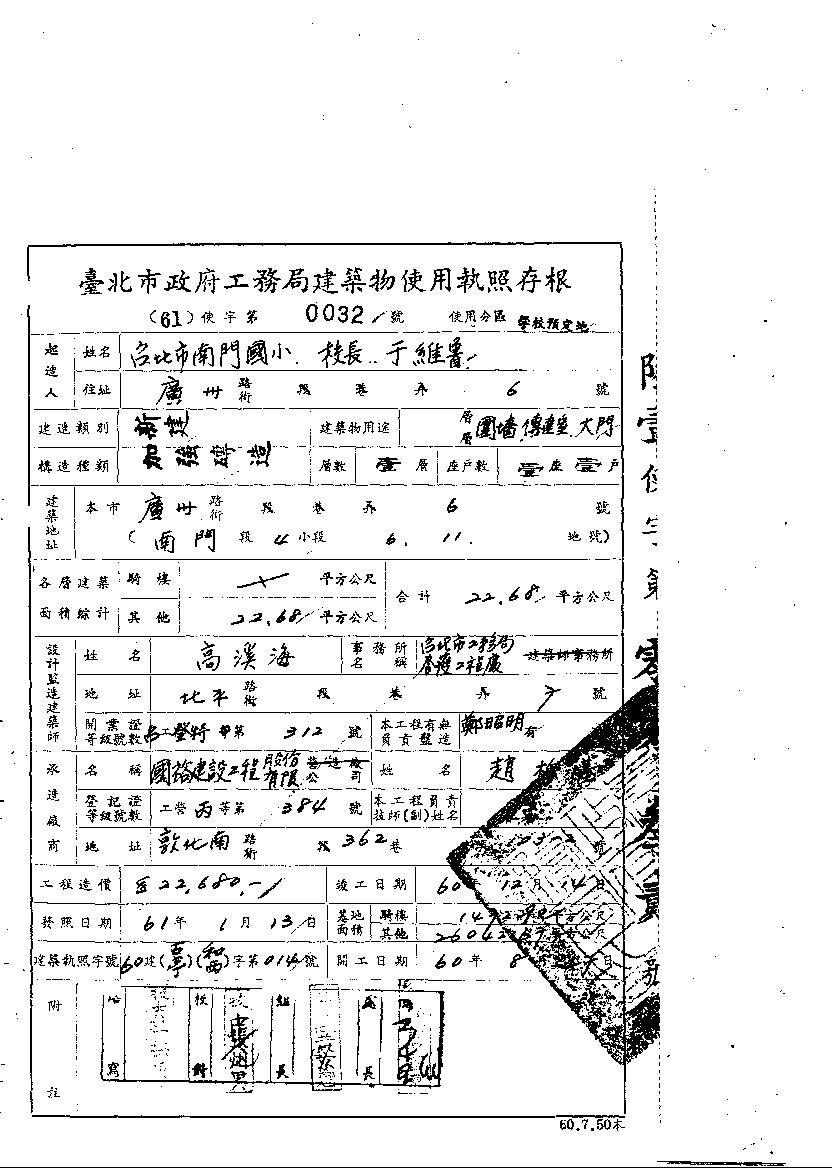 臺北市政府工務局建築物使用執照存根
(61)使字第 0032 號 使用分區 學校預定地
起造人 姓名 台北市南門國小 校長 于維魯
住址 廣州 路街 段 巷 弄 6 號
建造類別 新建 建築物用途 層層 圍墻 傳達室 大門
構造種類 加強磚造 層數 壹層 座戶數 壹座壹戶
建築地址 本市 廣州 路街 段 巷 弄 6 號
(南門 段 4 小段 6. 11. 地號)
各層建築面積綜計 騎樓 平方公尺 合計 22.68 平方公尺
其他 22.68 平方公尺
設計監造建築師 姓名 高溪海 事務所名稱 台北市工務局養護工程處 建築師事務所
地址 北平 路街 段 巷 弄 7 號
開業證等級號數 工登特 第 312 號 本工程有無負責監造 鄭昭明 有
承造廠商 名稱 國裕建設工程股份有限公司 營造廠 姓名 趙
登記證等級號數 工營 丙 等第 384 號 本工程負責技師(副)姓名
地址 敦化南 路街 段 362 巷 23-2 號
工程造價 22,680.- 竣工日期 60年12月14日
發照日期 61年1月13日 基地面積 騎樓 平方公尺
其他 平方公尺
建築執照字號 60建( )( )字第014號 開工日期 60年8月 日
附註 寫 校對 組長 長
壹使字第零 號
60.7.50本